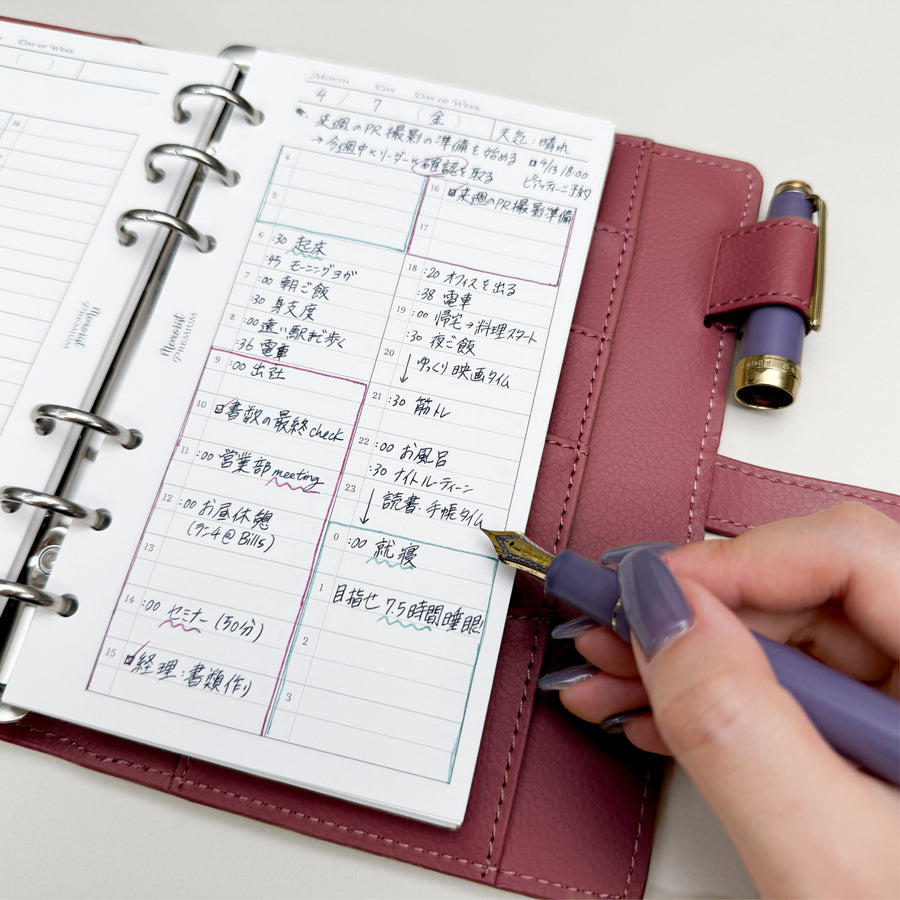 DAY OF WEEK
( )
16
Memorist
PREMIUM
Memorist
PREMIUM
MONTH DAY DAY OF WEEK
4 / 7 (金) 天気:晴れ
来週のPR撮影の準備を始める
→今週中にリーダーに確認を取る
4/13 18:00
ピラティス予約
4
5
6 :30 起床
:45 モーニングヨガ
7 :00 朝ご飯
:30 身支度
8 :00 遠い駅まで歩く
:36 電車
9 :00 出社
10 書類の最終check
11 :00 営業部meeting
12 :00 お昼休憩
(ランチ@Bills)
13
14 :00 セミナー(50分)
15 経理:書類作り
16 来週のPR撮影準備
17
18 :20 オフィスを出る
:38 電車
19 :00 帰宅→料理スタート
:30 夜ご飯
20 ↓ゆっくり映画タイム
21 :30 筋トレ
22 :00 お風呂
:30 ナイトルーティーン
23 ↓読書・手帳タイム
0 :00 就寝
1 目指せ7.5時間睡眠!
2
3